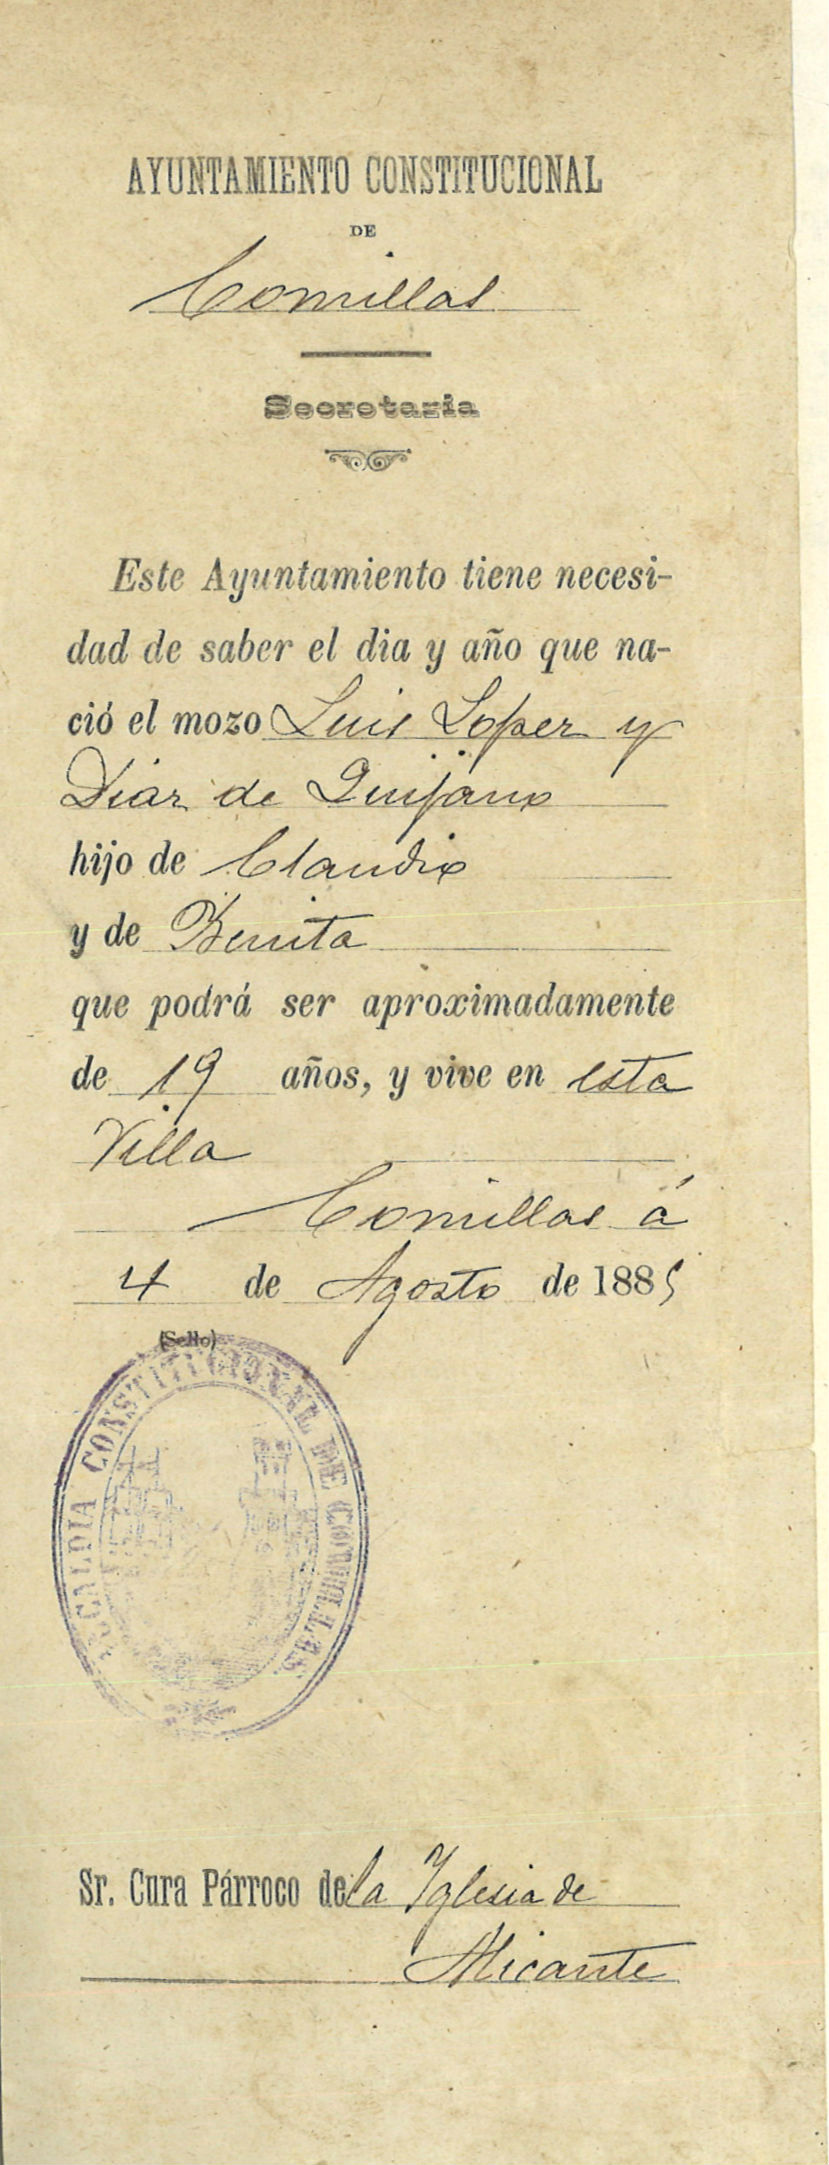 AYUNTAMIENTO CONSTITUCIONAL
DE
Comillas
Secretaria
Este Ayuntamiento tiene necesi-
dad de saber el dia y año que na-
ció el mozo Luis Lopez y
Diaz de Quijano
hijo de Claudio
y de Benita
que podrá ser aproximadamente
de 19 años, y vive en esta
Villa
Comillas á
4 de Agosto de 1885
(Sello)
ALCALDIA CONSTITUCIONAL DE COMILLAS
Sr. Cura Párroco de la Iglesia de
Alicante